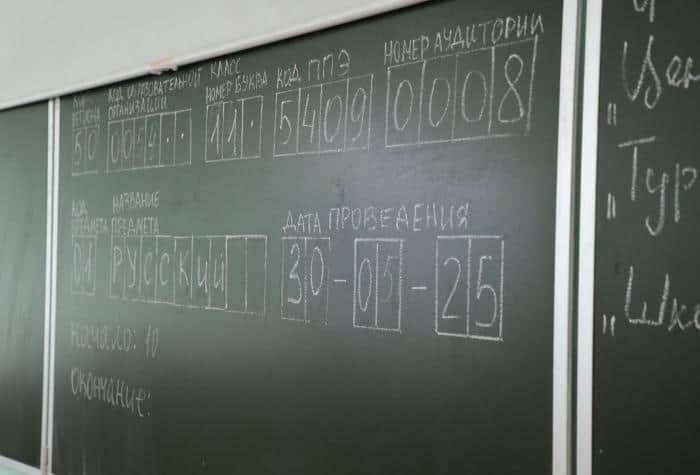 КОД КОД ОБРАЗОВАТЕЛЬНОЙ КЛАСС КОД ППЭ НОМЕР АУДИТОРИИ
РЕГИОНА ОРГАНИЗАЦИИ НОМЕР БУКВА
50 11. 5409 0008
КОД НАЗВАНИЕ
ПРЕДМЕТА ПРЕДМЕТА ДАТА ПРОВЕДЕНИЯ
01 РУССКИЙ 30-05-25
Начало: 10
Окончание: